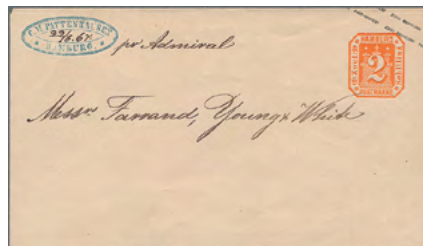 C. M. PATTENHAUSEN
22/6.67.
HAMBURG.
pr Admiral
HAMBURG
2
POSTMARKE
Messrs Farrand, Young & White